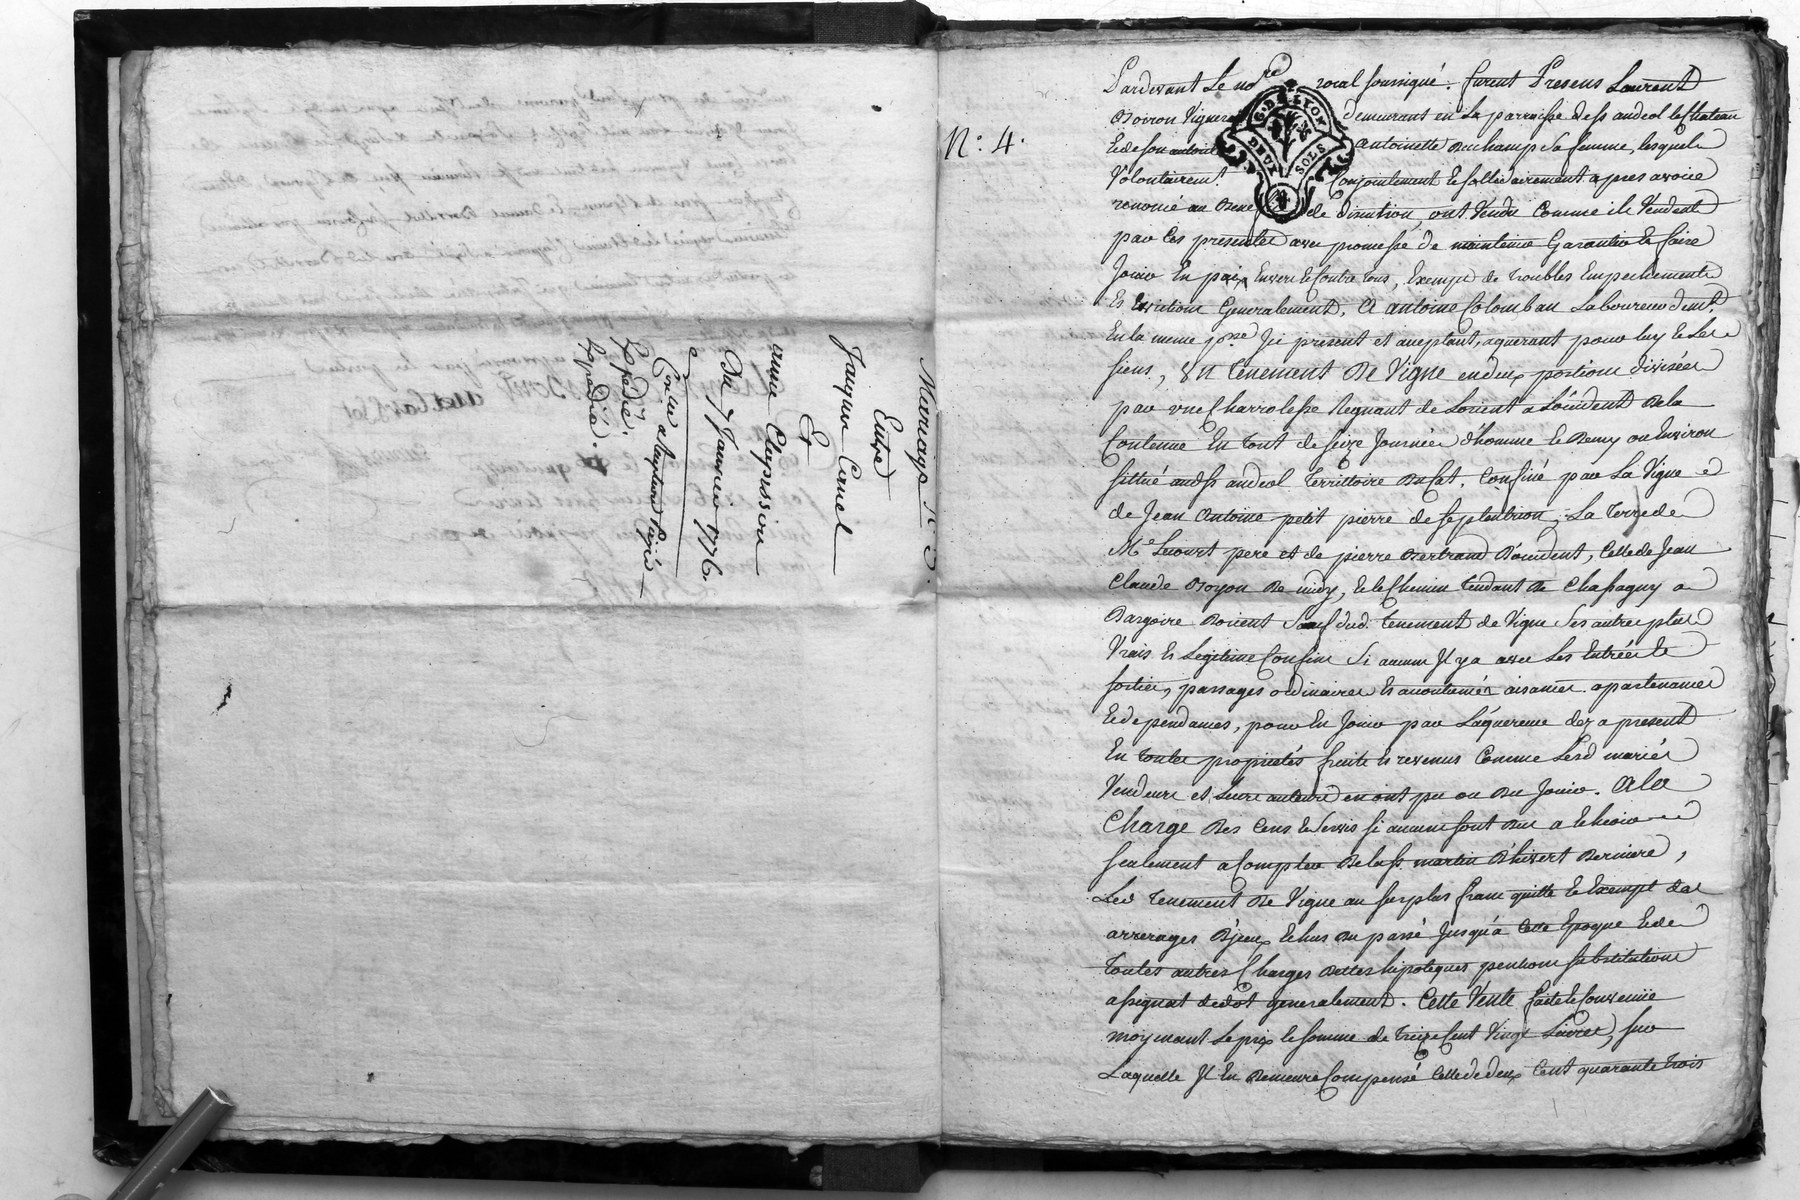 Mariage
Entre
Jacques Carrel
Et
anne Clapisson
Du 7 Janvier 1776.
Con.lée
Expédié.
Expédié.
N.° 4.
G. DE LYON
DEUX SOLS
Pardevant Le no.re roial soussigné. furent Presens Laurent
Boiron Vigneron demeurant en La parroisse de st andeol le Chateau
Et de son autorité antoinette Duchamp sa femme, lesquels
Volontairemt. Conjointement Et sollidairement apres avoir
renoncé au Benefice de discution, ont Vendu Comme ils Vendent
par Ces presentes avec promesse de maintenir Garantir Et faire
Jouir En paix Envers Et Contre tous, Exempt de troubles Empechements
Et Evictions Generalement, A antoine Colomban Laboureur demt.
En la meme p.sse Ici present et acceptant, aquerant pour luy Et Les
siens, Un tenement De Vigne en deux portions divisées
par une Charrolesse Regnant de Lorient a Loccident De la
Contenue En tout de seize Journées d'homme Et Demy ou Environ
sittué aud st andeol territtoire Du Cat. Confiné par La Vigne
de Jean Antoine petit pierre de septentrion, La terre de
M.e Lecourt pere et de pierre Bertrand D'occident, Celle de Jean
Claude Boyon De midy, Et le Chemin tendant De Chassagny a
Dargoire Dorient sauf dud. tenement de Vigne Ses autres plus
Vrais Et Legitimes Confins Si aucuns Il y a avec Ses Entrées Et
sorties, passages ordinaires Et accoutumés aisances apartenances
Et dependances, pour En Jouir par Laquereur des a present
En toutes proprietés fruits Et revenus Comme Lesd mariés
Vendeurs et Leurs auteurs en ont pu ou Du Jouir. A la
Charge Des Cens Et Servis si aucuns sont Dus a Echeoir
seulement a Compter De la st martin D'hivert Derniere,
Led tenement De Vigne au surplus franc quitte Et Exempt des
arrerages D'jceux Echus Du passé Jusqu'à Cette Epoque Et de
toutes autres Charges Dettes hipoteques pentions substitutions
assignat de dot generalement. Cette Vente faite Et Convenüe
moyenant Le prix Et somme de treize Cent Vingt Livres, sur
Laquelle Il En Demeure Compensé Celle de deux Cent quarante trois